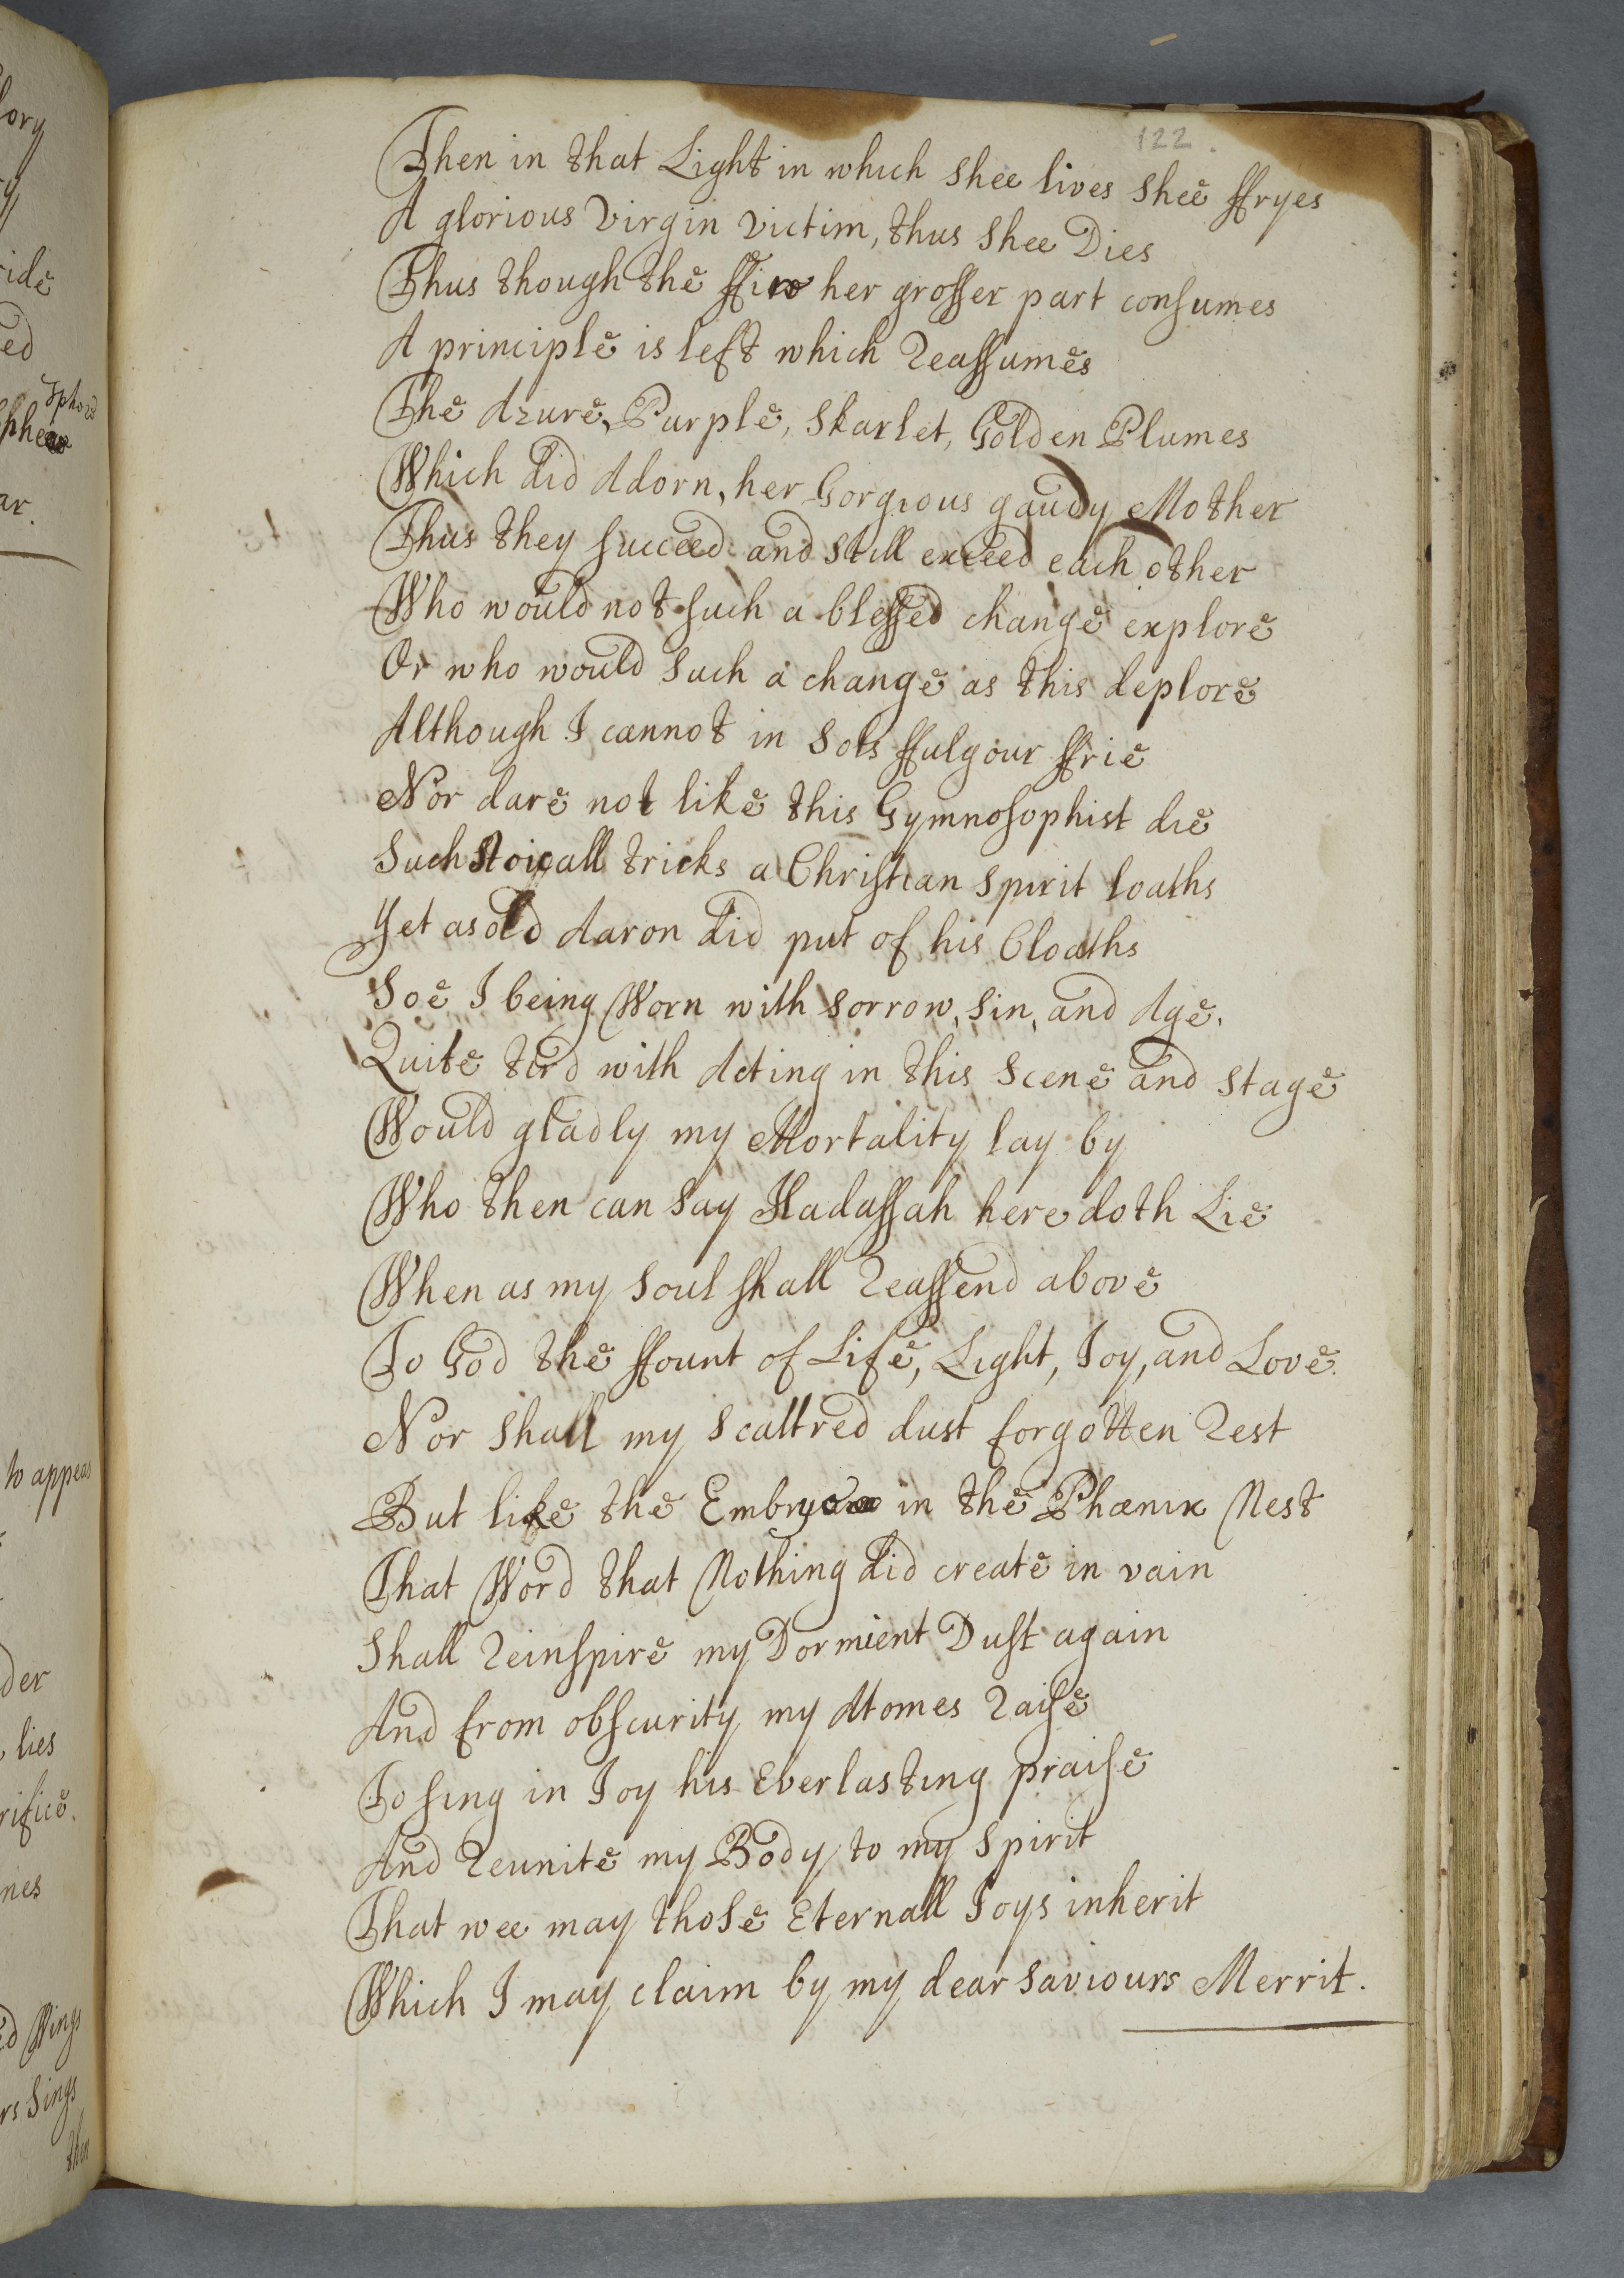 122
Then in that Light in which shee lives shee ffryes
A glorious Virgin Victim, thus shee Dies
Thus though the ffire her grosser part consumes
A principle is left which Reassumes
The Azure, Purple, Skarlet, Golden Plumes
Which did Adorn, her Gorgious gaudy Mother
Thus they succeed and still exceed each other
Who would not such a blessed change explore
Or who would such a change as this deplore
Although I cannot in Sols ffulgour ffrie
Nor dare not like this Gymnosophist die
Such Stoicall tricks a Christian Spirit loaths
Yet as old Aaron did put of his Cloaths
Soe I being Worn with sorrow, sin, and Age,
Quite tird with Acting in this Scene and Stage
Would gladly my Mortality lay by
Who then can say Hadassah here doth Lie
When as my Soul shall Reassend above
To God the ffount of Life, Light, Joy, and Love.
Nor shall my scattred dust forgotten Rest
But like the Embryo in the Phœnix Nest
That Word that Nothing did create in vain
Shall Reinspire my Dormient Dust again
And from obscurity my Atomes Raise
To sing in Joy his Everlasting praise
And Reunite my Body to my Spirit
That wee may those Eternall Joys inherit
Which I may claim by my dear Saviours Merrit.
lory
ide
ed
ar.
to appear
der
lies
rifice.
nes
ed Wings
rs Sings
then